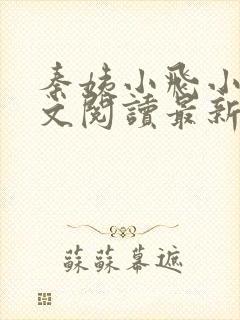 秦姨小飛小
文閱讀最新
蘇蘇幕遮